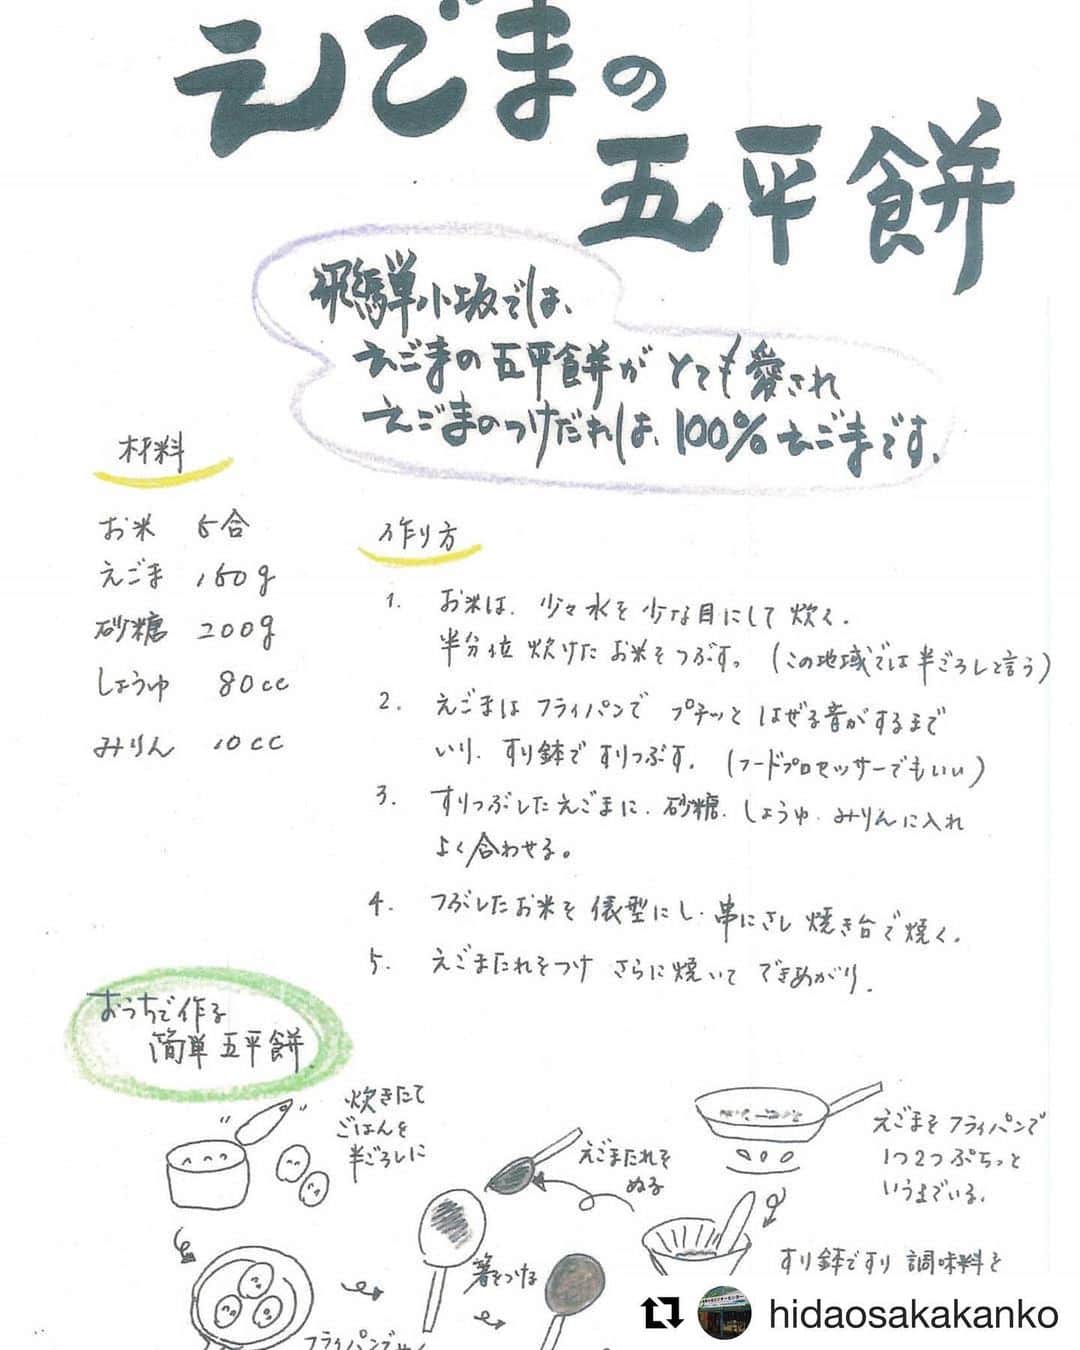 えごまの
五平餅
飛騨小坂では、
えごまの五平餅がとても愛され
えごまのつけだれは、100%えごまです。
材料
お米 5合
えごま 150g
砂糖 200g
しょうゆ 80cc
みりん 10cc
作り方
1. お米は、少々水を少な目にして炊く。
半分位炊けたお米をつぶす。(この地域では半ごろしと言う)
2. えごまはフライパンでプチッとはぜる音がするまで
いり、すり鉢ですりつぶす。(フードプロセッサーでもいい)
3. すりつぶしたえごまに、砂糖、しょうゆ、みりんに入れ
よく合わせる。
4. つぶしたお米を俵型にし、串にさし焼き台で焼く。
5. えごまたれをつけ さらに焼いて できあがり。
おうちで作る
簡単五平餅
炊きたて
ごはんを
半ごろしに
えごまたれを
ぬる
えごまをフライパンで
1つ2つぷちっと
いうまでいる。
箸をつける
すり鉢ですり調味料を
フライパンで
hidaosakakanko